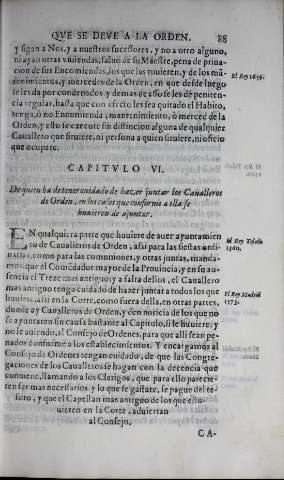 QVE SE DEVE A LA ORDEN. 88
y sigan a Nos, y a nuestros sucessores, y no a otro alguno,
ni ayan otras viuiendas, saluo de su Maestre, pena de priua-
cion de sus Encomiendas, los que las tuuieren, y de los má-
tenimientos, y mercedes de la Orden, en que desde luego
El Rey 1639.
se les da por condenados, y demas de esso se les dé peniten-
cia regular, hasta que con efecto les sea quitado el Habito,
tenga, ò no Encomienda, mantenimiento, ò merced de la
Orden, y esto se execute sin distincion alguna de qualquier
Cauallero que siruiere, ni persona a quien siruiere, ni oficio
que ocupare.
CAPITVLO VI.
De quien ha de tener cuidado de hazer juntar los Caualleros
de Orden, en los casos que conforme a ella se
huuieren de ajuntar.
EN qualquiera parte que huuiere de auer ayuntamien
to de Caualleros de Orden, assi para las fiestas ordi-
El Rey Toledo
1560.
narias, como para las comuniones, y otras juntas, manda-
mos, que el Comẽdador mayor de la Prouincia, y en su au-
sencia el Treze mas antiguo, y a falta dellos, el Cauallero
mas antiguo tenga cuidado de hazer juntar a todos los que
El Rey Madrid
1573.
huuiere, assi en la Corte, como fuera della, en otras partes,
donde ay Caualleros de Orden, y den noticia de los que no
se ayuntaren sin causa bastante al Capitulo, si le huuiere; y
no le auiendo, al Consejo de Ordenes, para que alli sean pe-
nados conforme a los establecimientos. Y encargamos al
Consejo de Ordenes tengan cuidado, de que las Congre-
gaciones de los Caualleros se hagan con la decencia que
conuiene, llamando a los Clerigos, que para ello parecie-
ren ser mas necessarios, y lo que se gastare, se pague del te-
soro, y que el Capellan mas antiguo de los que estu-
uieren en la Corte, aduiertan
al Consejo.
CA-